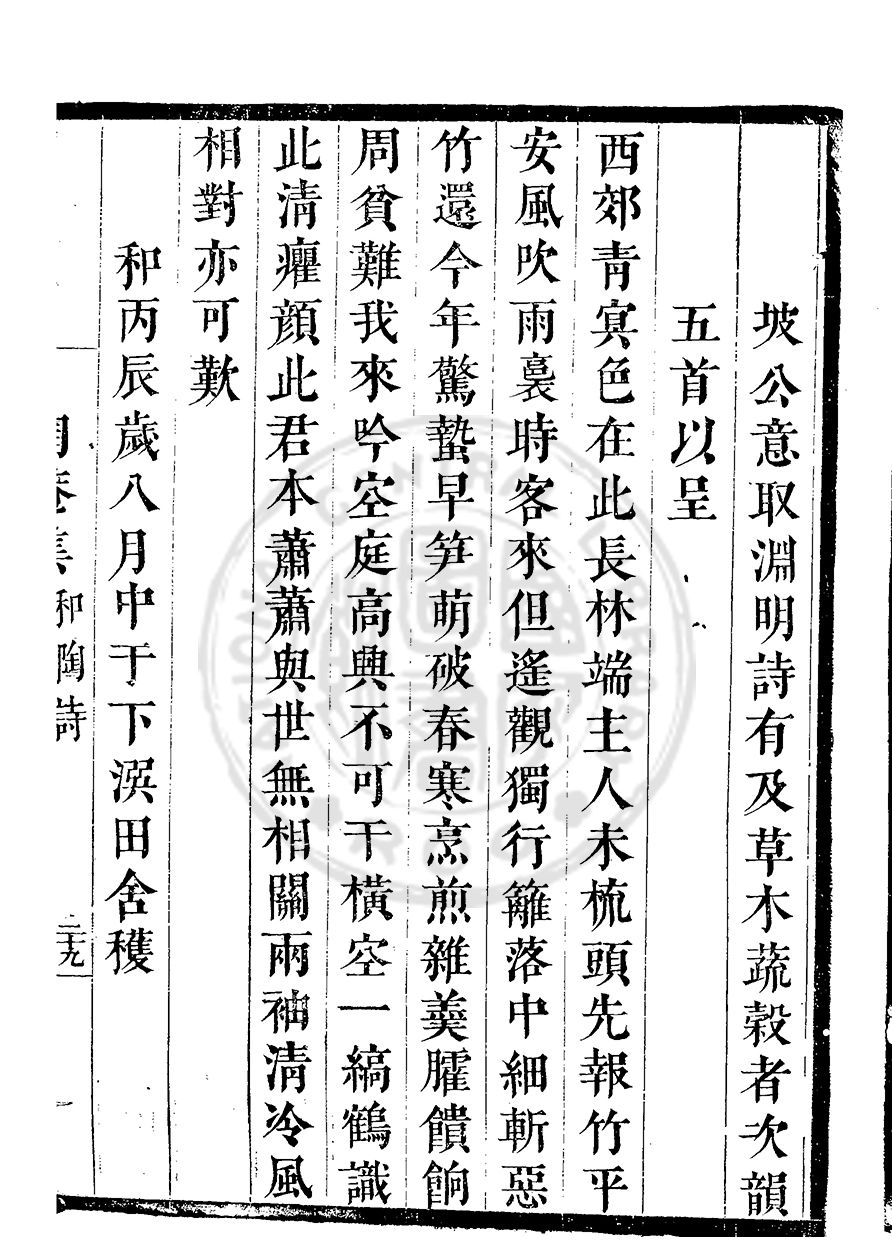 坡公意取淵明詩有及草木蔬穀者次韻
五首以呈
西郊青㝠色在此長林端主人未梳頭先報竹平
安風吹雨裛時客來但遙觀獨行籬落中細斬惡
竹還今年驚蟄早笋萌破春寒烹煎雜羹臛饋餉
周貧難我來吟空庭高興不可干橫空一縞鶴識
此清癯顔此君本蕭蕭與世無相關兩袖清冷風
相對亦可歎
和丙辰歲八月中干下潠田舍穫
和陶詩
二十九